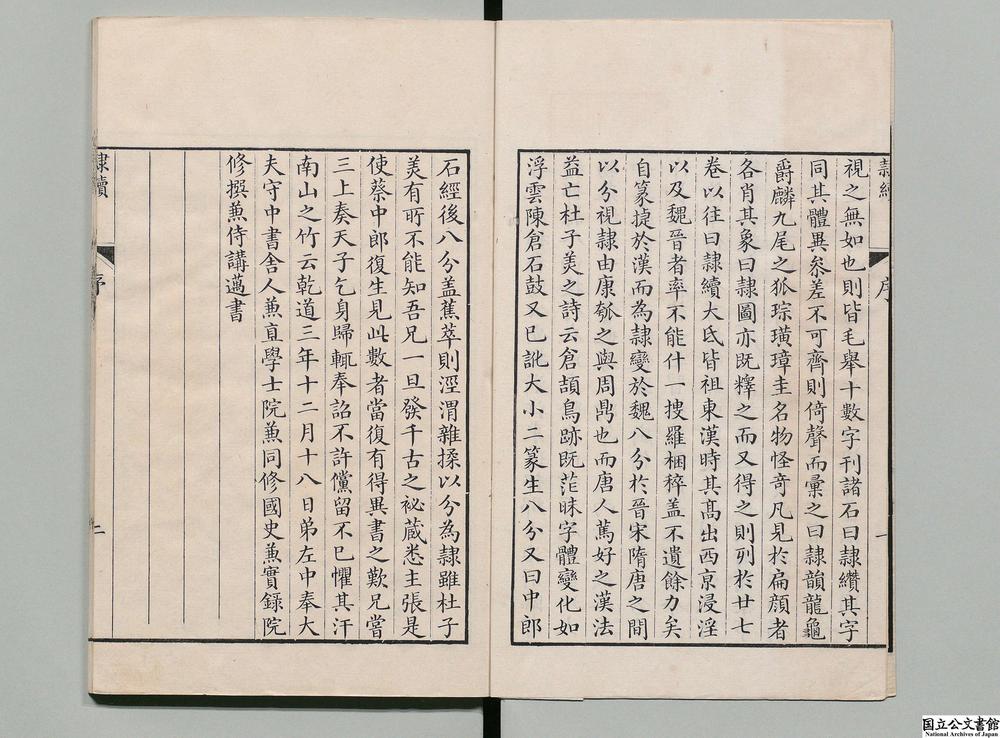 隷續
序
一
視之無如也則皆毛舉十數字刊諸石曰隷纘其字
同其體異叅差不可齊則倚聲而彚之曰隷韻龍龜
爵麟九尾之狐琮璜璋圭名物怪奇凡見於扁顔者
各肖其象曰隷圖亦既釋之而又得之則列於廿七
卷以往曰隷續大氐皆祖東漢時其髙出西亰浸淫
以及魏晉者率不能什一捜羅梱稡盖不遺餘力矣
自篆捷於漢而為隷變於魏八分於晉宋隋唐之間
以分視隷由康瓠之與周鼎也而唐人篤好之漢法
益亡杜子美之詩云倉頡鳥跡既茫昧字體變化如
浮雲陳倉石鼓又已訛大小二篆生八分又曰中郎
石經後八分盖蕉萃則涇渭雜揉以分為隷雖杜子
美有所不能知吾兄一旦發千古之祕蔵悉主張是
使蔡中郎復生見此數者當復有得異書之歎兄嘗
三上奏天子乞身歸輒奉詔不許儻留不已懼其汗
南山之竹云乾道三年十二月十八日弟左中奉大
夫守中書舎人兼直學士院兼同修國史兼實録院
修撰兼侍講邁書
隷續
序
二
国立公文書館
National Archives of Japan